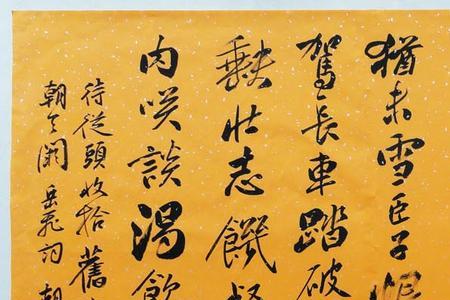 猶未雪臣子恨
駕長車踏破
缺壯志饑
肉咲談渴飲
待從頭收拾舊
朝天闕 岳飛詞 朝